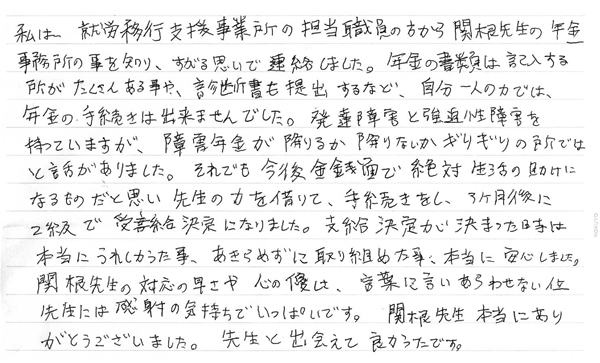 私は、就労移行支援事業所の担当職員の方から関根先生の年金
事務所の事を知り、すがる思いで連絡しました。年金の書類は記入する
所がたくさんある事や、診断書を提出するなど、自分一人の力では、
年金の手続きは出来ませんでした。発達障害と強迫性障害を
持っていますが、障害年金が降りるか降りないかギリギリの所では
と話がありました。それでも今後金銭面で絶対生活の助けに
なるものだと思い先生の力を借りて、手続きをし、3ヶ月後に
2級で受給決定になりました。支給決定が決まった日は
本当にうれしかった事、あきらめずに取り組めた事、本当に安心しました。
関根先生の対応の早さや心の優しさは、言葉に言いあらわせない位
先生には感射の気持ちでいっぱいです。関根先生本当にあり
がとうございました。先生と出会えて良かったです。